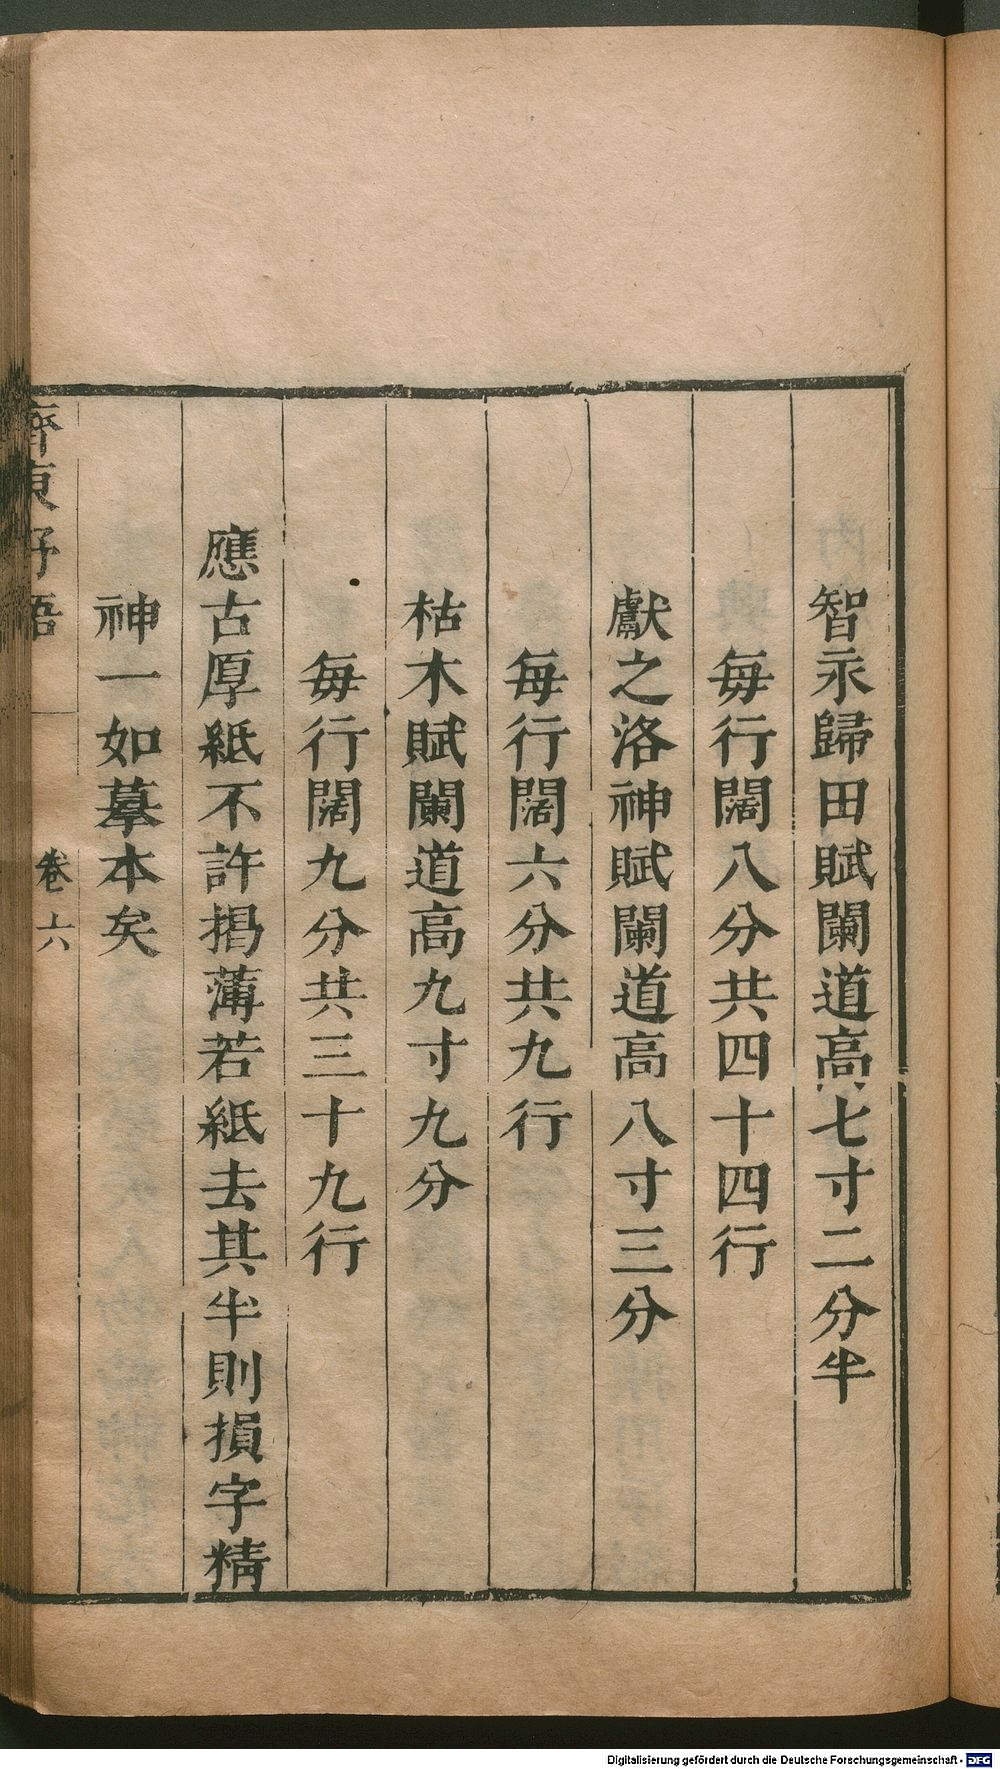 智永歸田賦闌道高七寸二分半
每行闊八分共四十四行
獻之洛神賦闌道高八寸三分
每行闊六分共九行
枯木賦闌道高九寸九分
每行闊九分共三十九行
應古厚紙不許揭薄若紙去其半則損字精
神一如摹本矣
齊東野語
卷六
Digitalisierung gefördert durch die Deutsche Forschungsgemeinschaft - DFG